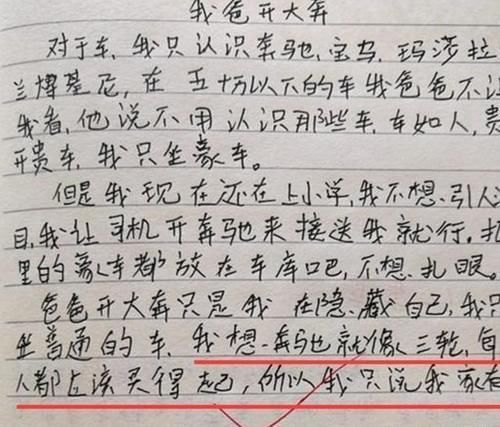 我爸开大奔
对于车,我只认识奔驰,宝马,玛莎拉
兰博基尼,在五十万以下的车我爸爸不让
我看,他说不用认识那些车,车如人,贵
开贵车,我只坐豪车。
但是我现在还在上小学,我不想引人注
目,我让司机开奔驰来接送我就行。
里的豪车都放在车库吧,不想扎眼。
爸爸开大奔只是我在隐藏自己,我只
坐普通的车,我想奔驰就像三轮,每
人都应该买得起,所以我只说我家有